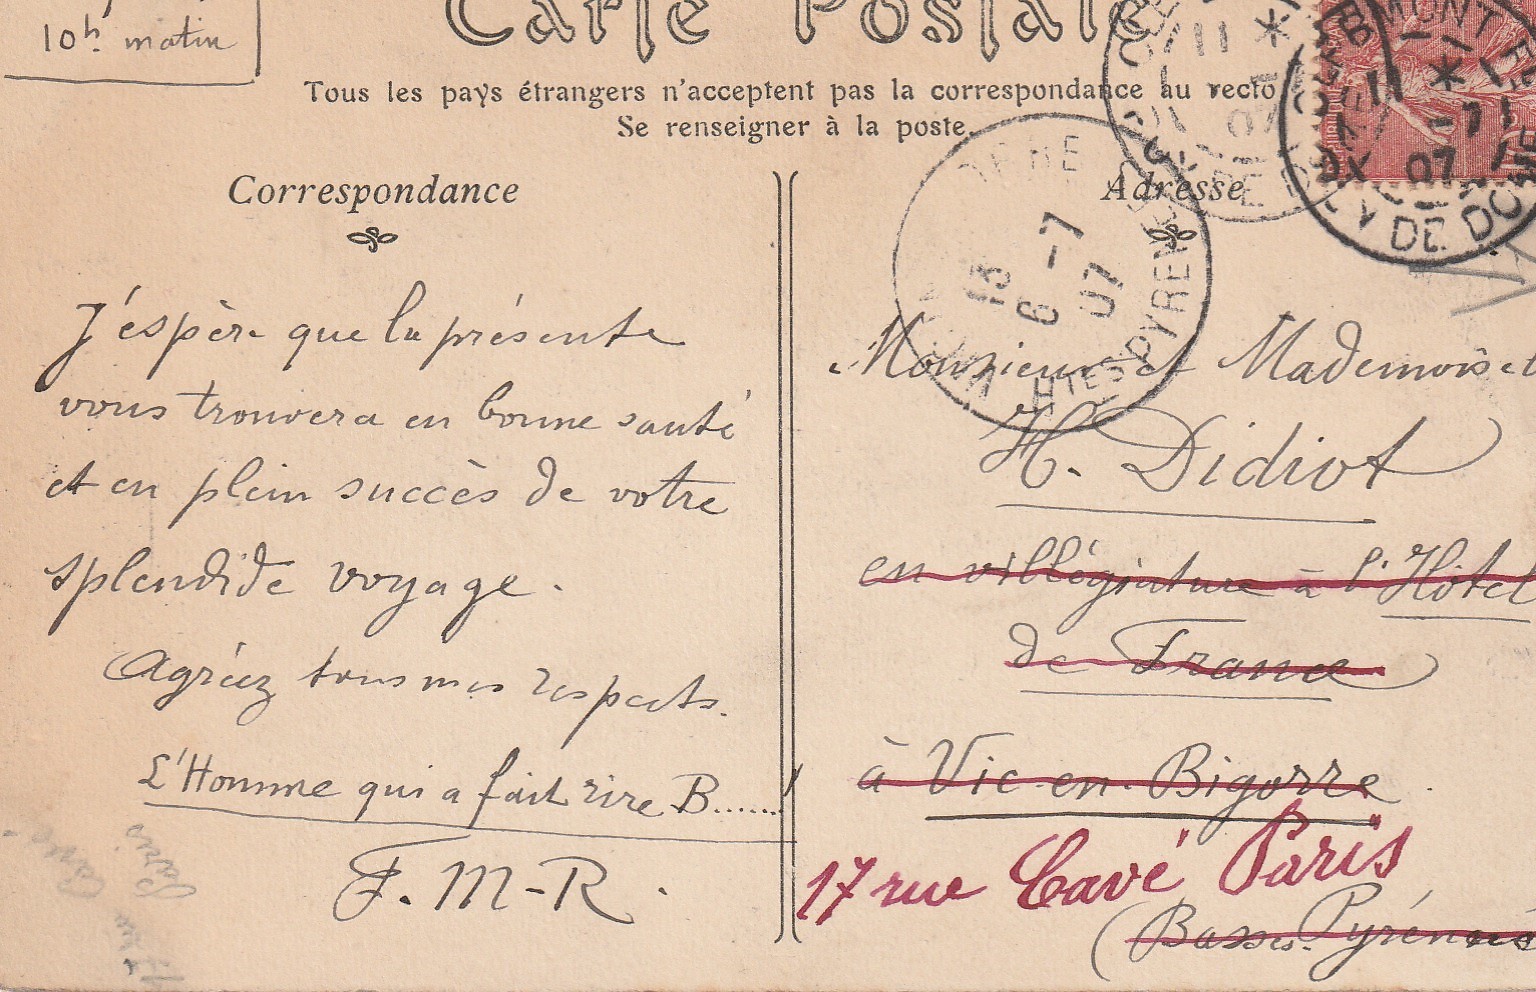 10h matin
Carte Postale
Tous les pays étrangers n'acceptent pas la correspondance au recto
Se renseigner à la poste.
Correspondance
J'espère que la présente
vous trouvera en bonne santé
et en plein succès de votre
splendide voyage.
Agréez tous mes respects.
L'Homme qui a fait rire B......
F. M-R.
Adresse
Monsieur et Mademoisel
H. Didiot
en villégiature à l'Hôtel
de France
à Vic-en-Bigorre.
17 rue Cavé Paris
(Basses-Pyrénées
13
6-7
07
HTES PYRENEES
11
07
MONT FE
11
-7
07
PUY DE DOME
17 rue
Cavé
Paris